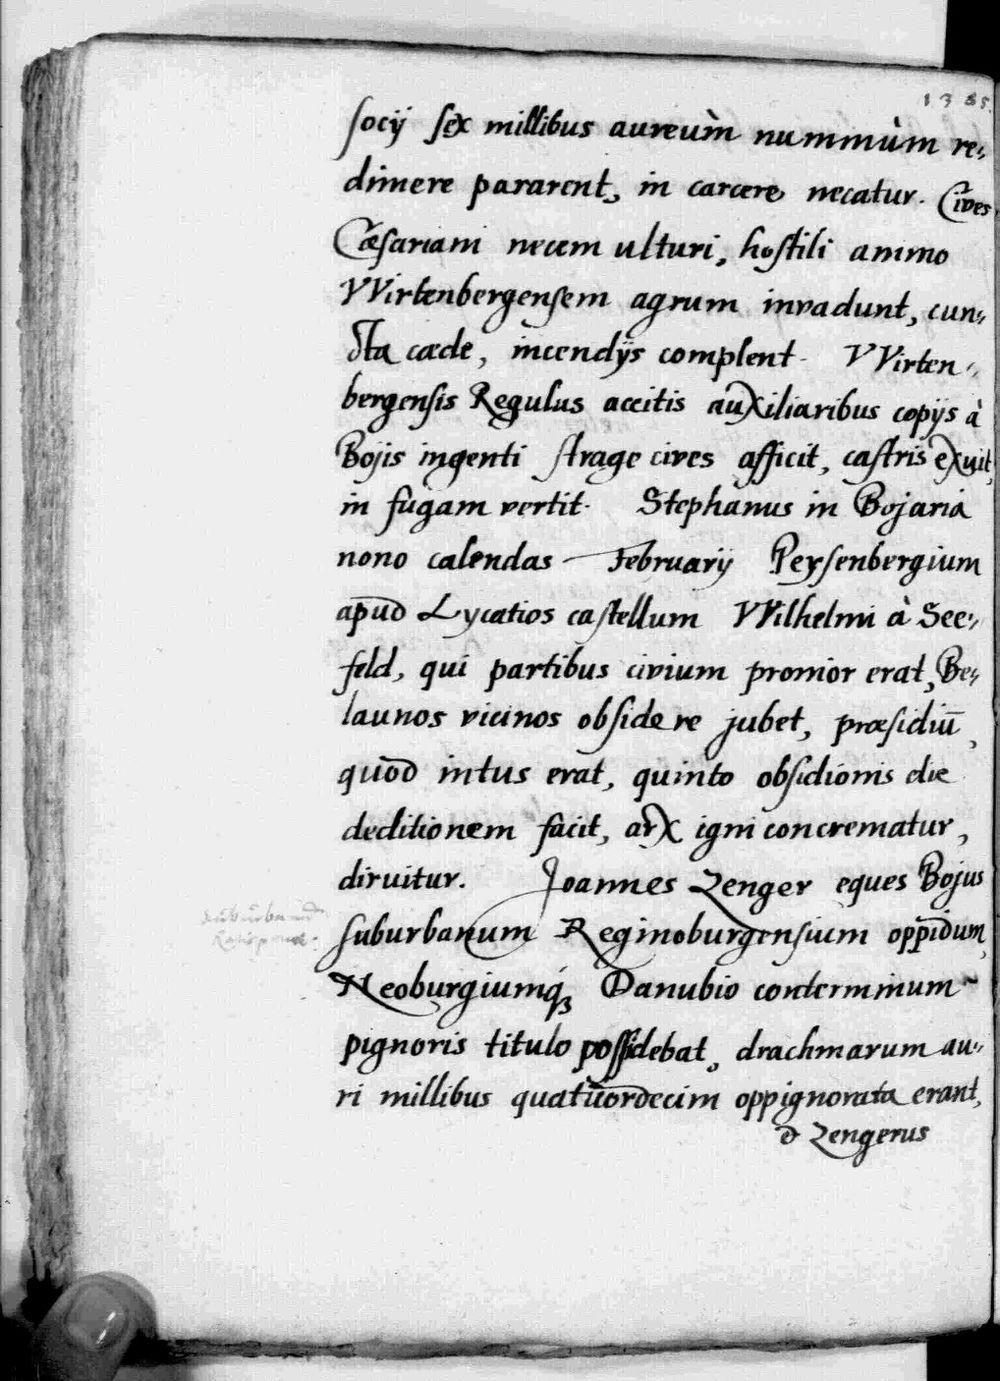 1385.
socij sex millibus aureum̀ nummùm re-
dimere pararent, in carcere necatur. Cives
Cæsariani necem ulturi, hostili animo
VVirtenbergensem agrum invadunt, cun-
cta cæde, incendijs complent. VVirten-
bergensis Regulus accitis auxiliaribus copijs à
Bojis ingenti strage cives afficit, castris exuit,
in fugam vertit. Stephanus in Bojaria
nono calendas Februarij Peysenbergium
apud Lycatios castellum VVilhelmi à See-
feld, qui partibus civium pronior erat, Be-
launos vicinos obsidere jubet, præsidiū,
quod intus erat, quinto obsidionis die
deditionem facit, arx igni concrematur,
diruitur. Joannes Zenger eques Bojus
suburbanum Reginoburgensium oppidum,
Neoburgiumq́ꝫ Danubio conterminum
pignoris titulo possidebat, drachmarum au-
ri millibus quatuordecim oppignorata erant,
Zengerus